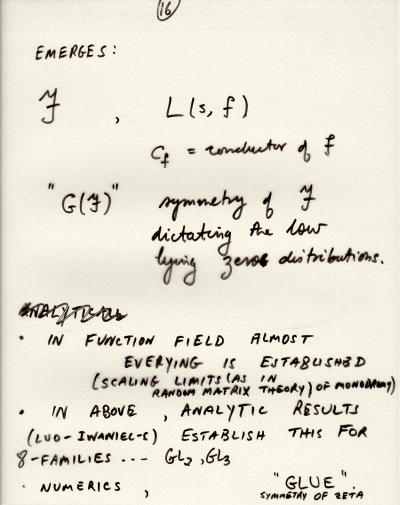 16
EMERGES:
ℱ , L(s, f)
C_f = conductor of f
"G(ℱ)" symmetry of ℱ
dictating the low
lying zeros distributions.
• IN FUNCTION FIELD ALMOST
EVERYING IS ESTABLISHED
(SCALING LIMITS (AS IN
RANDOM MATRIX THEORY) OF MONODROMY)
• IN ABOVE , ANALYTIC RESULTS
(LUO-IWANIEC-S) ESTABLISH THIS FOR
8-FAMILIES --- GL₂, GL₃
• NUMERICS, "GLUE".
SYMMETRY OF ZETA